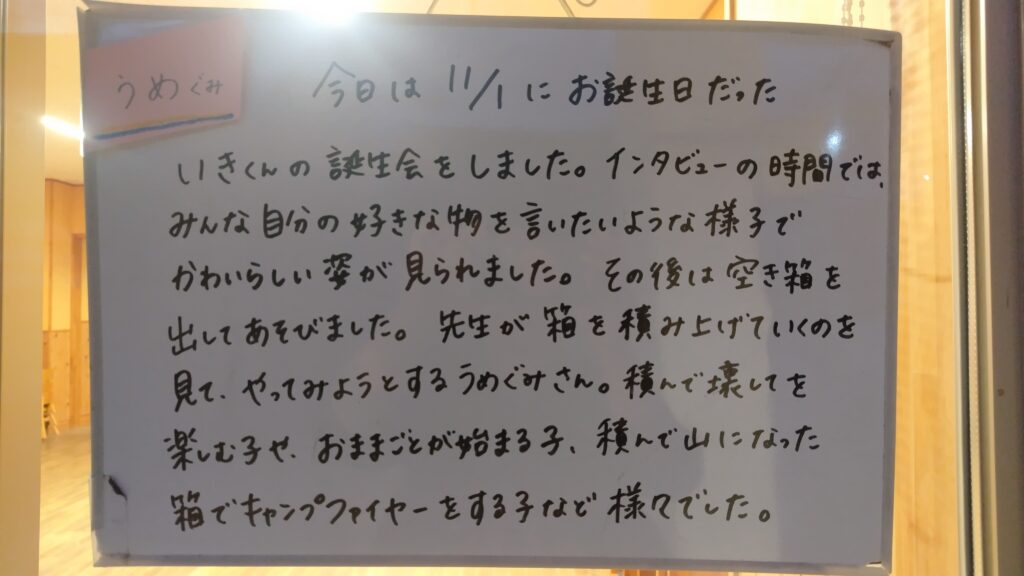 うめぐみ
今日は 11/1 に お誕生日だった
いきくんの 誕生会をしました。インタビューの時間では、
みんな自分の好きな物を言いたいような様子で
かわいらしい姿が見られました。その後は空き箱を
出してあそびました。先生が箱を積み上げていくのを
見て、やってみようとするうめぐみさん。積んで壊してを
楽しむ子や、おままごとが始まる子、積んで山になった
箱でキャンプファイヤーをする子など様々でした。